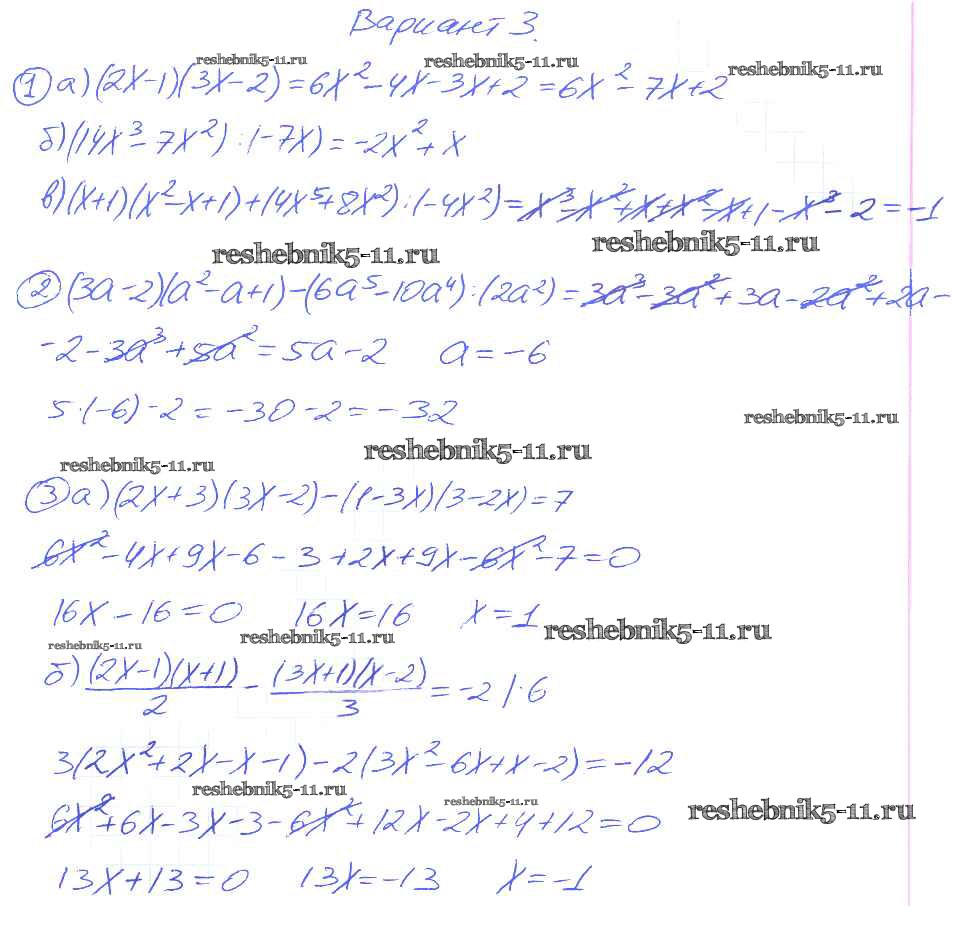 Вариант 3.
reshebnik5-11.ru
reshebnik5-11.ru
reshebnik5-11.ru
① а) (2x-1)(3x-2)=6x²-4x-3x+2=6x²-7x+2
б) (14x³-7x²):(-7x)=-2x²+x
в) (x+1)(x²-x+1)+(4x⁵+8x²):(-4x²)=x³-x²+x+x²-x+1-x³-2=-1
reshebnik5-11.ru
reshebnik5-11.ru
② (3a-2)(a²-a+1)-(6a⁵-10a⁴):(2a²)=3a³-3a²+3a-2a²+2a-
-2-3a³+5a²=5a-2 a=-6
5·(-6)-2=-30-2=-32
reshebnik5-11.ru
reshebnik5-11.ru
reshebnik5-11.ru
③ а) (2x+3)(3x-2)-(1-3x)(3-2x)=7
6x²-4x+9x-6-3+2x+9x-6x²-7=0
16x-16=0 16x=16 x=1
reshebnik5-11.ru
reshebnik5-11.ru
reshebnik5-11.ru
б) (2x-1)(x+1)/2 - (3x+1)(x-2)/3 = -2 |·6
3(2x²+2x-x-1)-2(3x²-6x+x-2)=-12
reshebnik5-11.ru
reshebnik5-11.ru
reshebnik5-11.ru
6x²+6x-3x-3-6x²+12x-2x+4+12=0
13x+13=0 13x=-13 x=-1